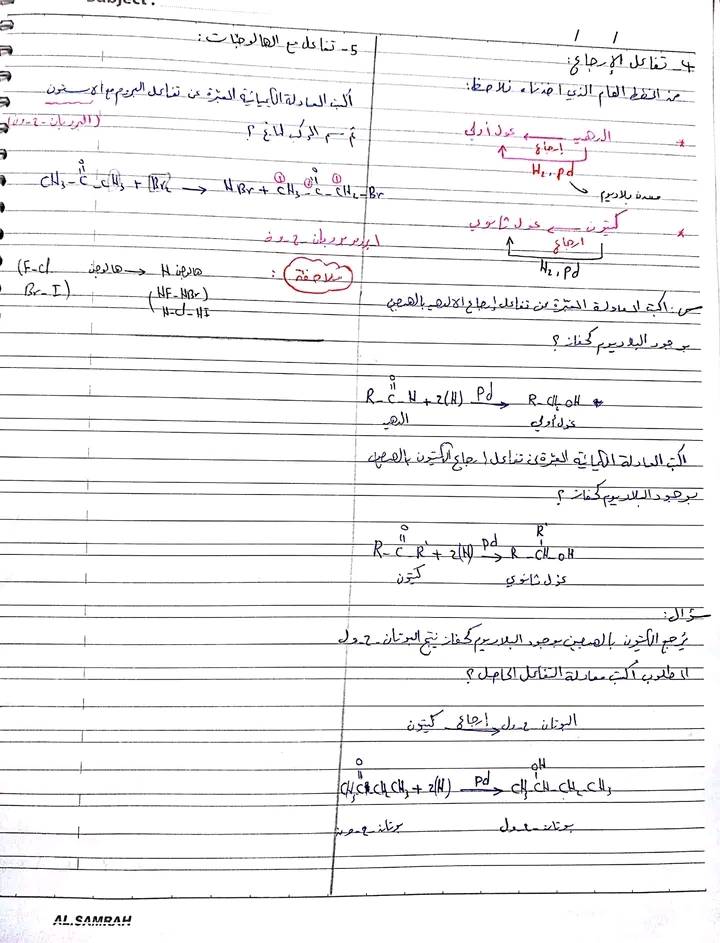 Subject:
/ /
4- تفاعل الإرجاع:
من المخطط العام الذي أخذناه نلاحظ:
* الدهيد → غول أولي
إرجاع
H2, pd
معدن بلاديوم
* كيتون → غول ثانوي
إرجاع
H2, pd
س: اكتب المعادلة المعبرة عن تفاعل إرجاع الالدهيد بالهدرجين
بوجود البلاديوم كحفاز؟
O
R-C-H + 2(H) Pd→ R-CH2OH
الدهيد غول أولي
اكتب المعادلة الكيميائية المعبرة عن تفاعل إرجاع الكيتون بالهدرجين
بوجود البلاديوم كحفاز؟
O R'
R-C-R' + 2(H) Pd→ R-CH-OH
كيتون غول ثانوي
سؤال:
يُرجع الكيتون بالهدرجين بوجود البلاديوم كحفاز ينتج البوتان-2-ول
المطلوب أكتب معادلة التفاعل الحاصل؟
البوتان-2-ول إرجاع كيتون
O OH
+ 2(H) Pd→ CH3-CH-CH2-CH3
بوتان-2-ون بوتان-2-ول
5- تفاعل مع الهالوجينات:
أكتب المعادلة الكيميائية المعبرة عن تفاعل البروم مع الاسيتون
ثم سمِ المركب الناتج؟ (البروبان-2-ون)
O O
CH3-C-CH3 + Br2 → HBr + CH3-C-CH2-Br
③ ② ①
1-برومو بروبان-2-ون
ملاحظة: هالوجين H → هالوجين (F-Cl
Br-I)
(HF-HBr)
H-Cl-HI
AL.SAMRAH